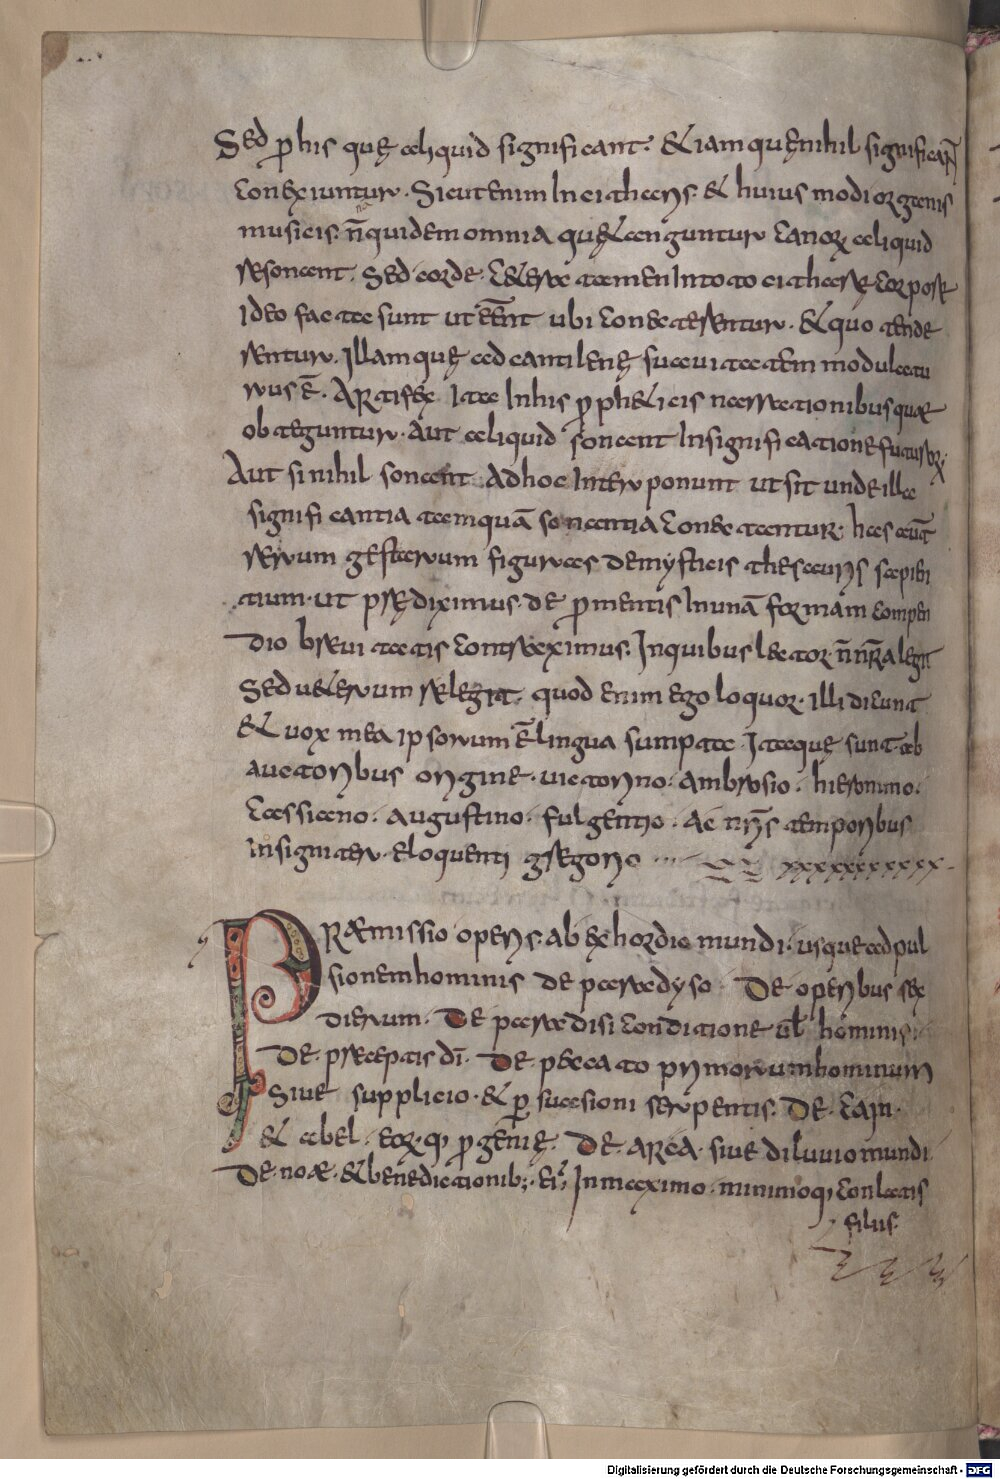 Sed p̱ his quę aliquid significant. &iam quęnihil significaɴ̄
conexiuntur. Sicut enim In citharis. & huius modi organis
musicis. n̄ quidem omnia quę tanguntur canorū aliquid
resonant. Sed corde. Cetera tamen In toto citharę corpore
Ideo facta sunt ut eēnt ubi conecterentur. & quo tende
rentur. Illam quę ad cantilenę suauitatem modulatu
rus ē. Artifex Ita In his p̱ ph&icis narrationibus quæ
ob teguntur. Aut aliquid sonant In significatione futurorū.
Aut si nihil sonant Ad hoc Inter ponunt ut sit unde illa
significantia tamquā sonantia conectantur. has aut̄
rerum gestarum figuras de mysticis thesauris sapien
tium. ut prædiximus. de p̱mentis In unā formam compen
dio breui tatis contraximus. In quibus lector. n̄ nr̄a legit
Sed u&erum relegit. quod enim ego loquor. Illi dicunt
& uox mea ipsorum ē lingua sumpta. Itaque sunt ab
auctoribus origine. uictorino. Ambrosio. hieronimo.
Cassiano. Augustino. fulgentio. Ac nr̄is temporibus
Insigniter. Eloquenti gregorio
PRÆmissio operis. ab exhordio mundi. usque ad pul
sionem hominis de paradyso. De operibus sex
dierum. De paradisi conditione ul̄ hominis.
De. præceptis dī. De. peccato primorum hominum
Siue supplicio. & p̱ sucesioni serpentis. De. Cain.
& abel. eorūq; p̱genię. De. Arca. siue diluuio mundi
De. noæ. & benedictionib;. ei; In maximo. minimoq; conlatis
filus.
Digitalisierung gefördert durch die Deutsche Forschungsgemeinschaft - DFG